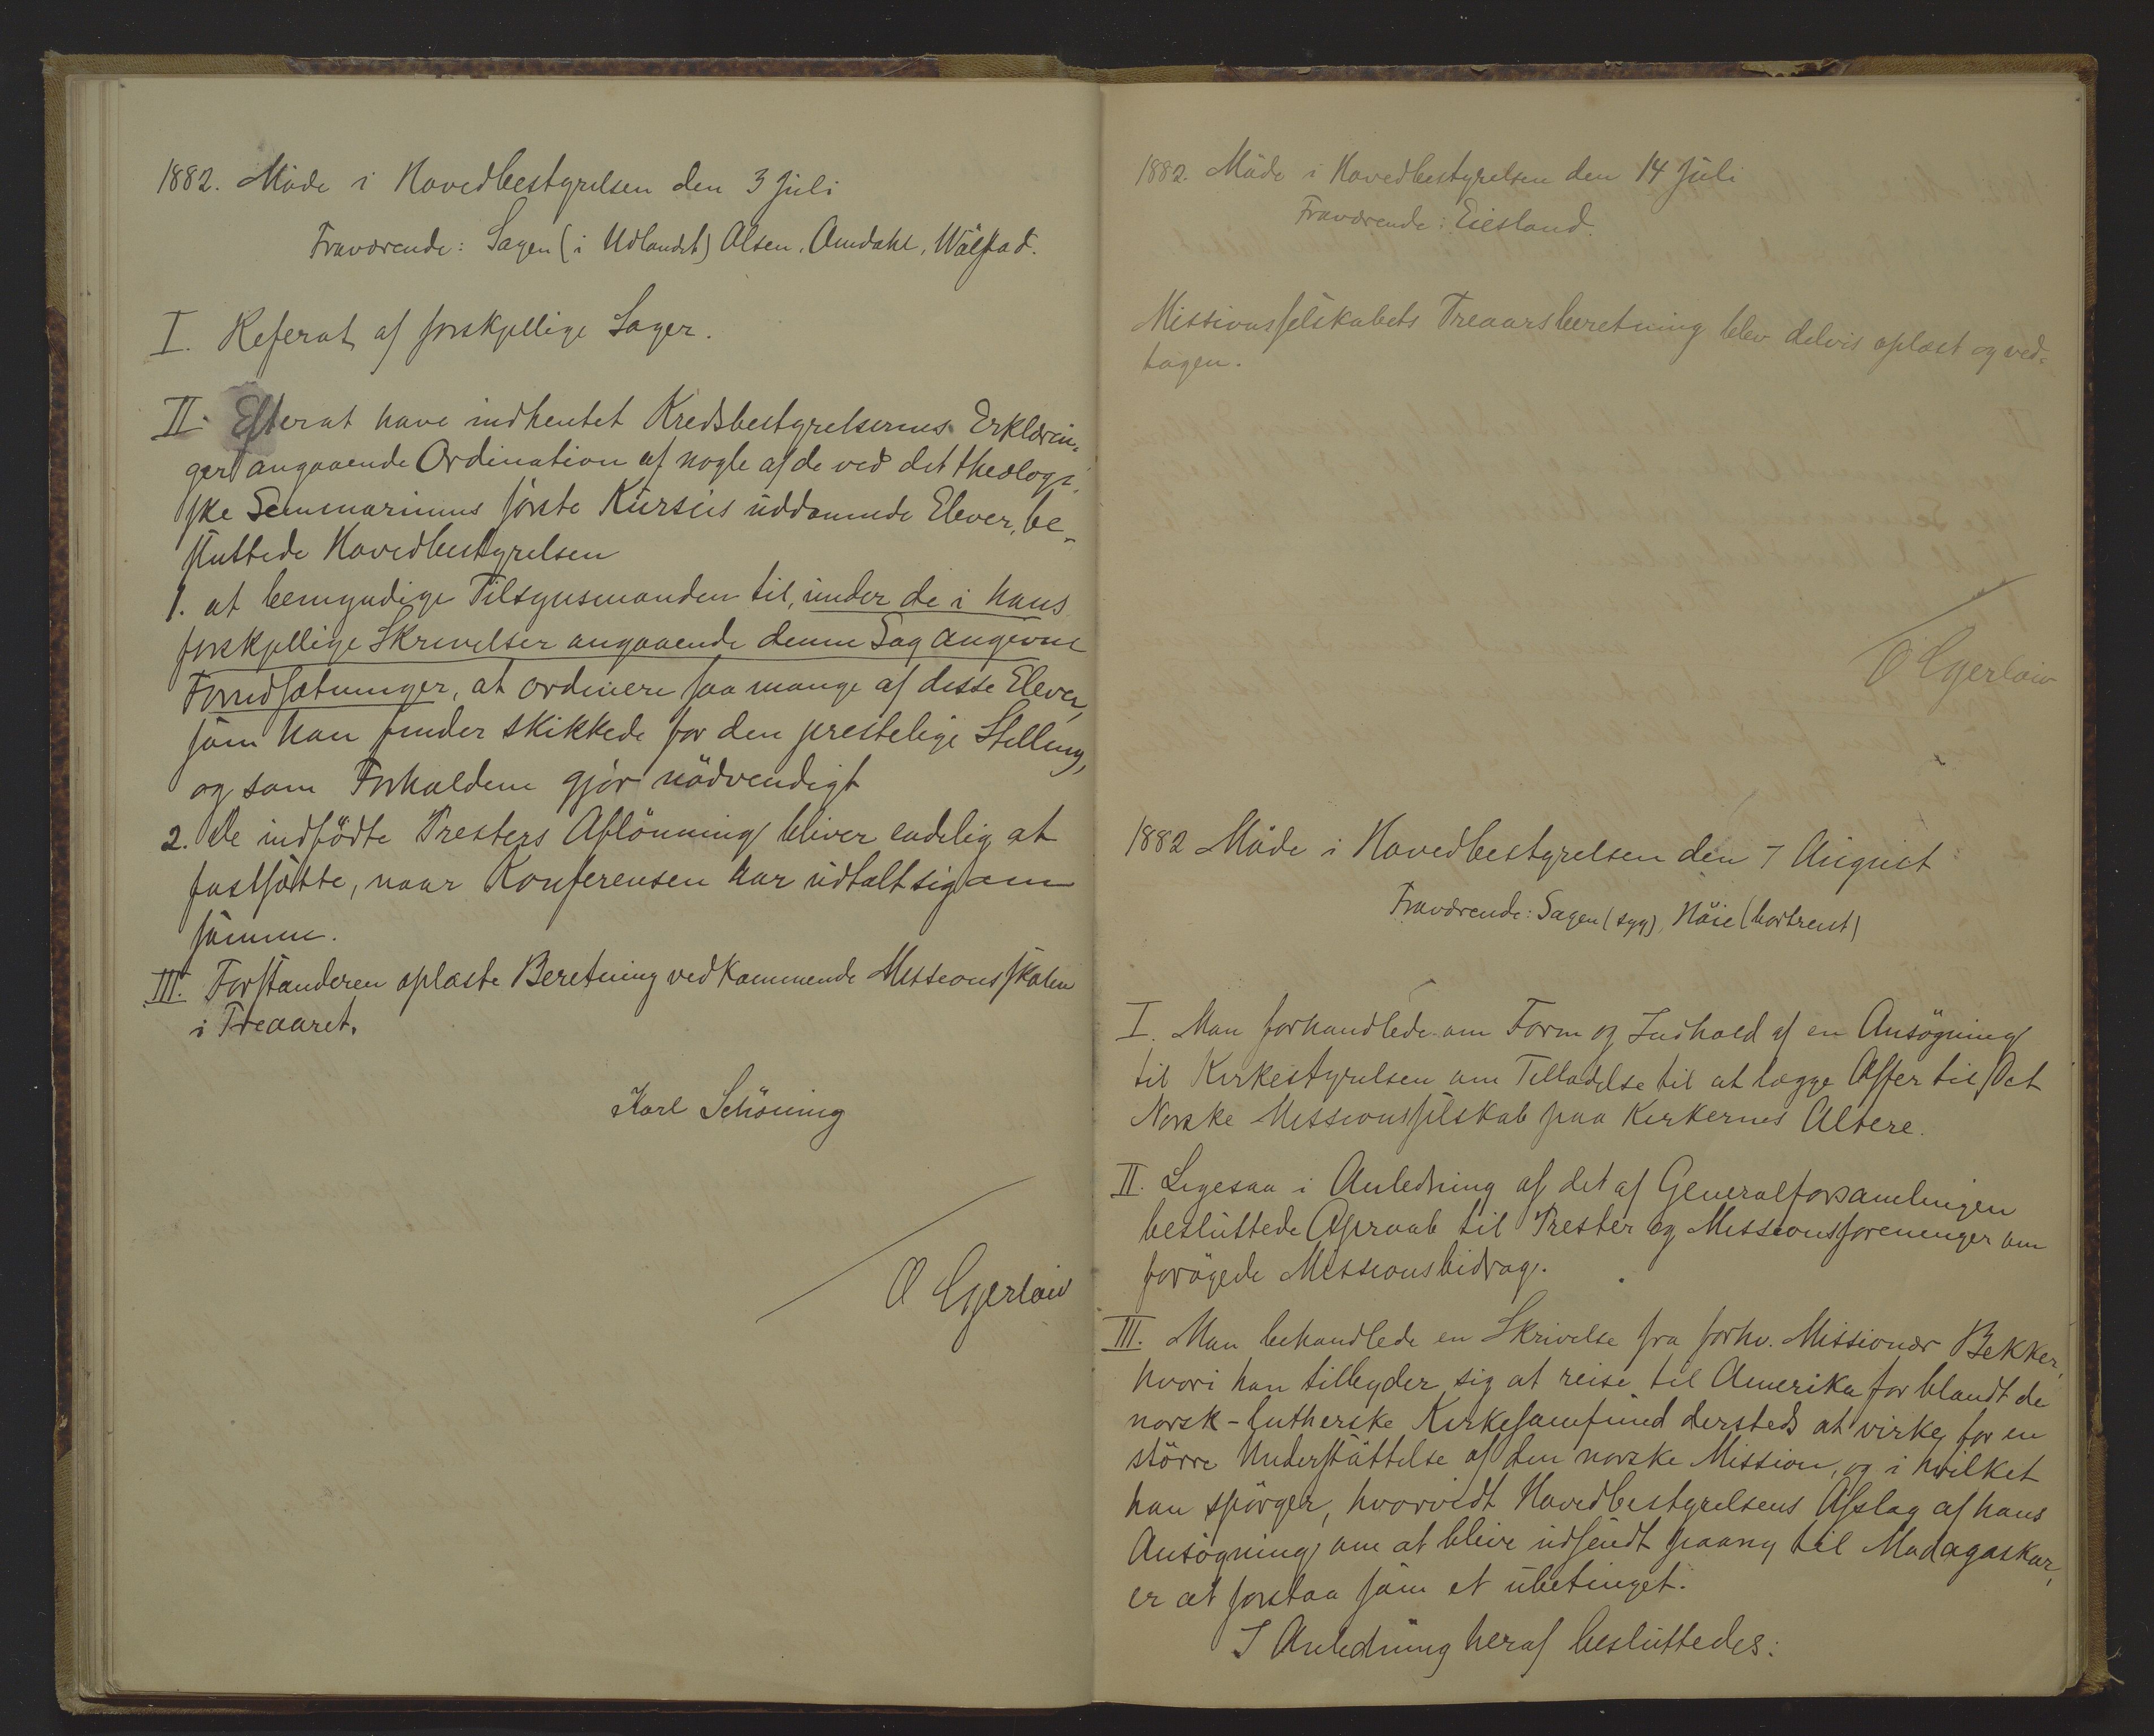 1882. Møde i Hovedbestyrelsen den 3 Juli
Fraværende: Sagen (i Udlandet) Olsen, Omdahl, Wælstad.
I. Referat af forskjellige Sager.
II. Efterat have indhentet Kredsbestyrelsernes Erklærin-
ger angaaende Ordination af nogle af de ved det theologi-
ske Seminariums første Kursus uddannede Elever, be-
sluttede Hovedbestyrelsen
1. at bemyndige Tilsynsmanden til, under de i hans
forskjellige Skrivelser angaaende denne Sag angivne
Forudsætninger, at ordinere saa mange af disse Elever,
som han finder skikkede for den prestelige Stilling,
og som Forholdene gjør nødvendigt
2. De indfødte Presters Aflønning bliver endelig at
fastsætte, naar Konferensen har udtalt sig om
samme.
III. Forstanderen oplæste Beretning vedkommende Missionsskolen
i Treaaret.
Karl Schøning
O Gjerløw
1882. Møde i Hovedbestyrelsen den 14 Juli
Fraværende: Eiesland.
Missionsselskabets Treaarsberetning blev delvis oplæst og ved-
tagen.
O Gjerløw
1882 Møde i Hovedbestyrelsen den 7 August
Fraværende: Sagen (syg), Høie (bortreist)
I. Man forhandlede om Form og Indhold af en Ansøgning
til Kirkestyrelsen om Tilladelse til at lægge Offer til Det
Norske Missionsselskab paa Kirkernes Altere.
II. Ligesaa i Anledning af det af Generalforsamlingen
besluttede Opraab til Prester og Missionsforeninger om
forøgede Missionsbidrag.
III. Man behandlede en Skrivelse fra forhv. Missionær Bekker,
hvori han tilbyder sig at reise til Amerika for blandt de
norsk-lutherske Kirkesamfund dersteds at virke for en
større Understøttelse af den norske Mission, og i hvilket
han spørger, hvorvidt Hovedbestyrelsens Afslag af hans
Ansøgning om at blive udsendt paany til Madagaskar,
er at forstaa som et ubetinget.
I Anledning heraf besluttedes: